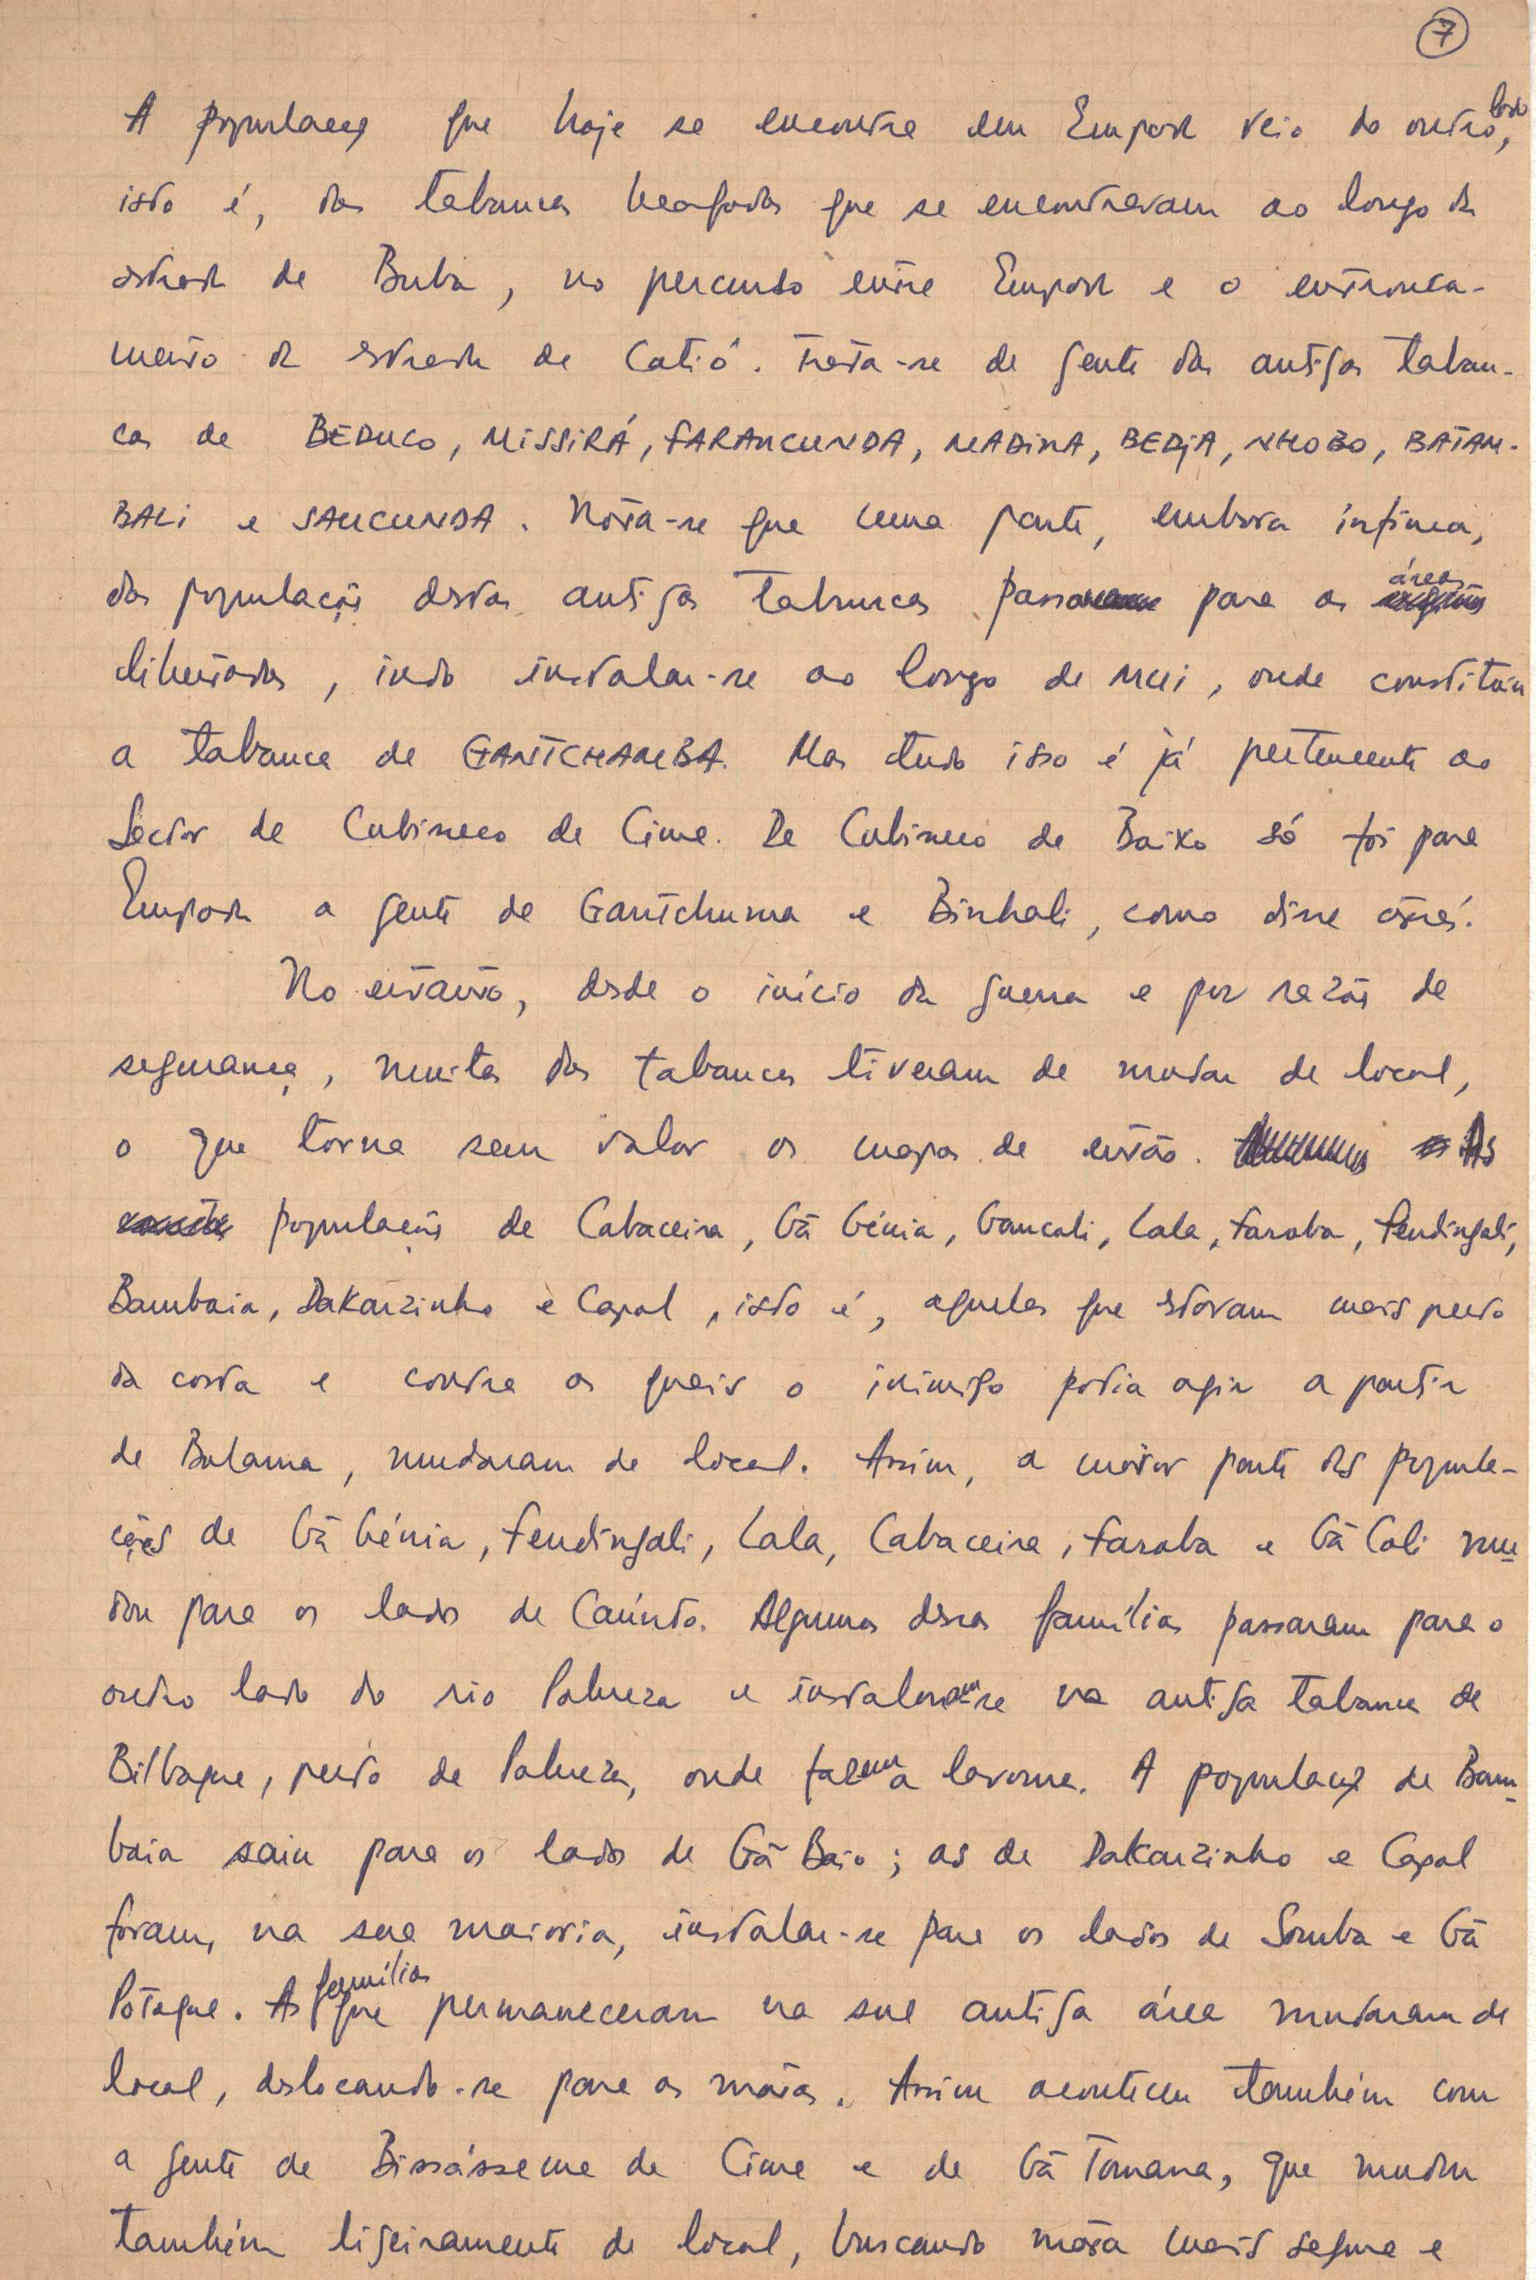 7
A população que hoje se encontra em Empada veio do outro lado,
isto é, das tabancas beafadas que se encontravam ao longo da
estrada de Buba, no percurso entre Empada e o entronca-
mento da estrada de Catió. Trata-se de gente das antigas taban-
cas de BEDUCO, MISSIRÁ, FARANCUNDA, MADINA, BEDJA, NHOBO, BATAM-
BALI e SAUCUNDA. Nota-se que uma parte, embora ínfima,
das populações destas antigas tabancas passou para as áreas
libertadas, indo instalar-se ao longo de Mui, onde constitui
a tabanca de GANTCHAMBA. Mas tudo isso é já pertencente ao
Sector de Cubisseco de Cima. De Cubisseco de Baixo só foi para
Empada a gente de Gantchuma e Binhali, como disse atrás.
No entanto, desde o início da guerra e por razões de
segurança, muitas das tabancas tiveram de mudar de local,
o que torna sem valor os mapas de então. As
populações de Cabaceira, Gã Génia, Gancali, Lala, Faraba, Fendingali,
Bambaia, Dakarzinho e Capal, isto é, aquelas que estavam mais perto
da costa e contra as quais o inimigo podia agir a partir
de Bolama, mudaram de local. Assim, a maior parte das popula-
ções de Gã Génia, Fendingali, Lala, Cabaceira, Faraba e Gã Cali mu-
dou para os lados de Caúnto. Algumas dessas famílias passaram para o
outro lado do rio Pobreza e instalaram-se na antiga tabanca de
Bilbaque, perto de Pobreza, onde fazem a lavoura. A população de Bam-
baia saiu para os lados de Gã Baio; as de Dakarzinho e Capal
foram, na sua maioria, instalar-se para os lados de Somba e Gã
Potaque. As famílias que permaneceram na sua antiga área mudaram de
local, deslocando-se para as matas. Assim aconteceu também com
a gente de Bissásseme de Cima e de Gã Tomana, que mudou
também ligeiramente de local, buscando mata mais segura e